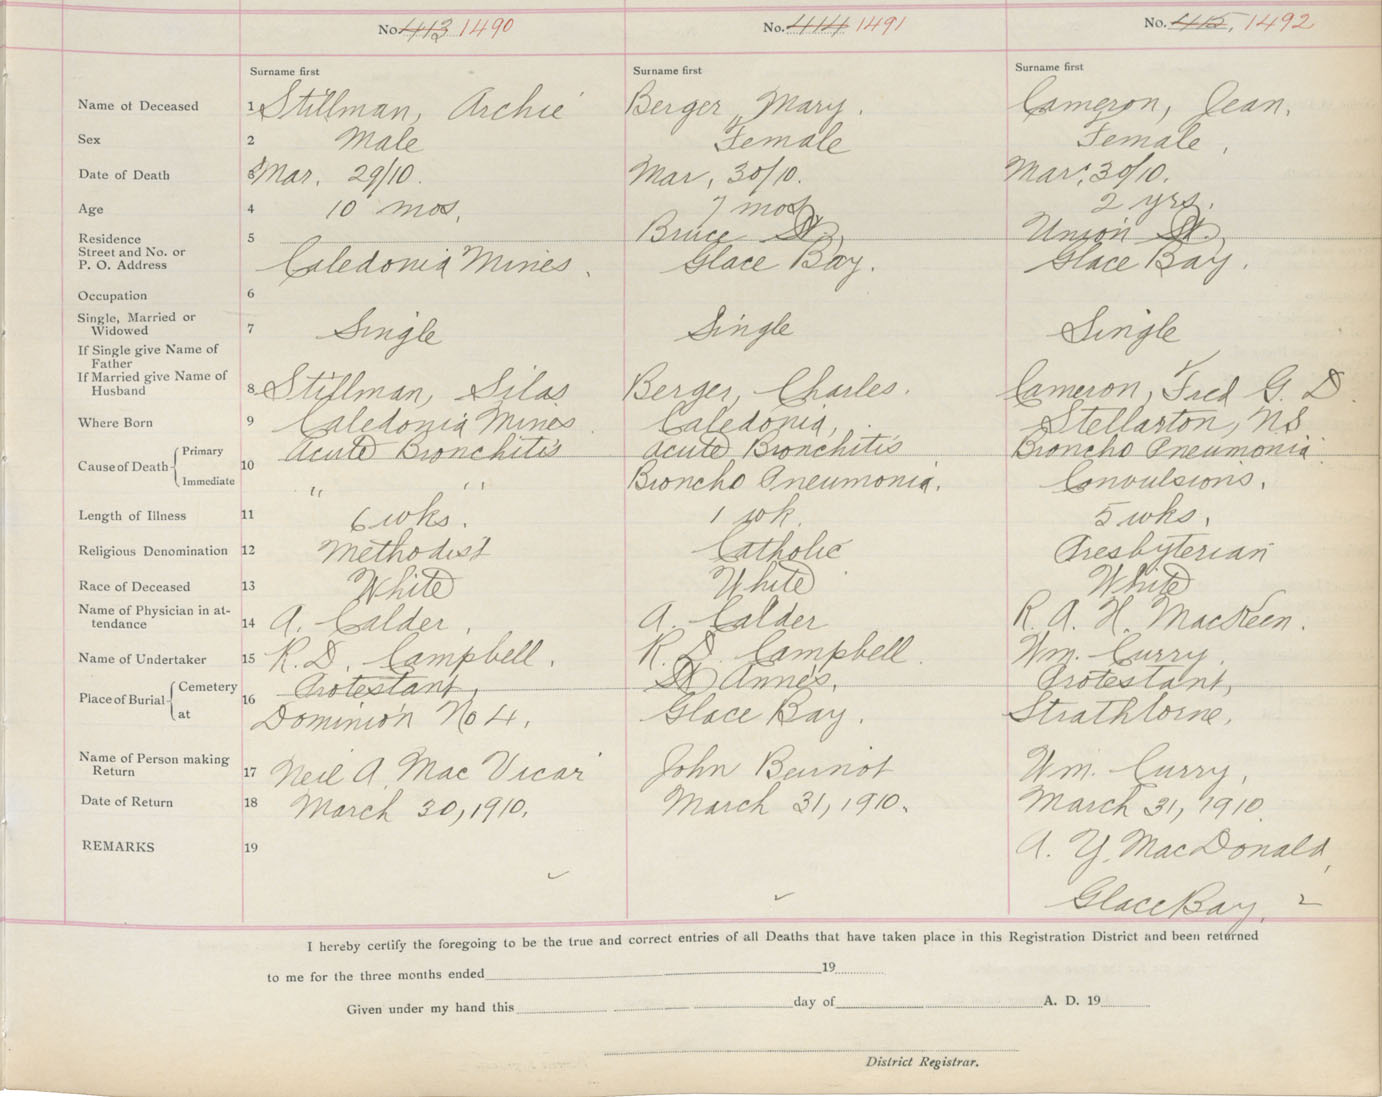 No. 413 1490 No. 414 1491 No. 415, 1492
Surname first Surname first Surname first
Name of Deceased 1 Stillman, Archie Berger, Mary. Cameron, Jean.
Sex 2 Male Female Female,
Date of Death 3 Mar. 29/10. Mar, 30/10. Mar, 30/10.
Age 4 10 mos. 7 mos 2 yrs.
Residence 5 Bruce St., Union St.,
Street and No. or
P. O. Address Caledonia Mines. Glace Bay. Glace Bay.
Occupation 6
Single, Married or
Widowed 7 Single Single Single
If Single give Name of
Father
If Married give Name of
Husband 8 Stillman, Silas Berger, Charles. Cameron, Fred G. D.
Where Born 9 Caledonia Mines Caledonia, Stellarton, NS
Cause of Death Primary 10 Acute Bronchitis Acute Bronchitis Broncho Pneumonia
Immediate " " Broncho Pneumonia. Convulsions.
Length of Illness 11 6 wks. 1 wk. 5 wks.
Religious Denomination 12 Methodist Catholic Presbyterian
Race of Deceased 13 White White White
Name of Physician in at-
tendance 14 A. Calder, A. Calder R. A. H. MacKeen.
Name of Undertaker 15 R. D. Campbell. R. D. Campbell. Wm. Curry.
Place of Burial Cemetery 16 Protestant, St Anne's, Protestant,
at Dominion No 4. Glace Bay. Strathlorne,
Name of Person making
Return 17 Neil A. Mac Vicar John Bernot Wm. Curry,
Date of Return 18 March 30, 1910. March 31, 1910. March 31, 1910.
REMARKS 19 A. Y. MacDonald,
Glace Bay.
I hereby certify the foregoing to be the true and correct entries of all Deaths that have taken place in this Registration District and been returned
to me for the three months ended 19
Given under my hand this day of A. D. 19
District Registrar.